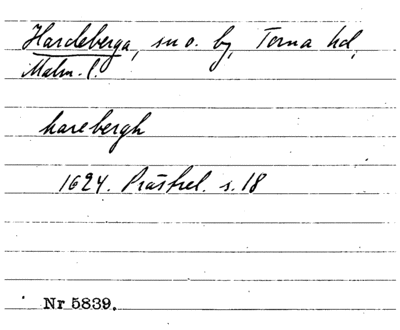 Hardeberga, sn o. by, Torna hd,
Malm. l.
harebergh
1624. Prästrel. s. 18
Nr 5839.